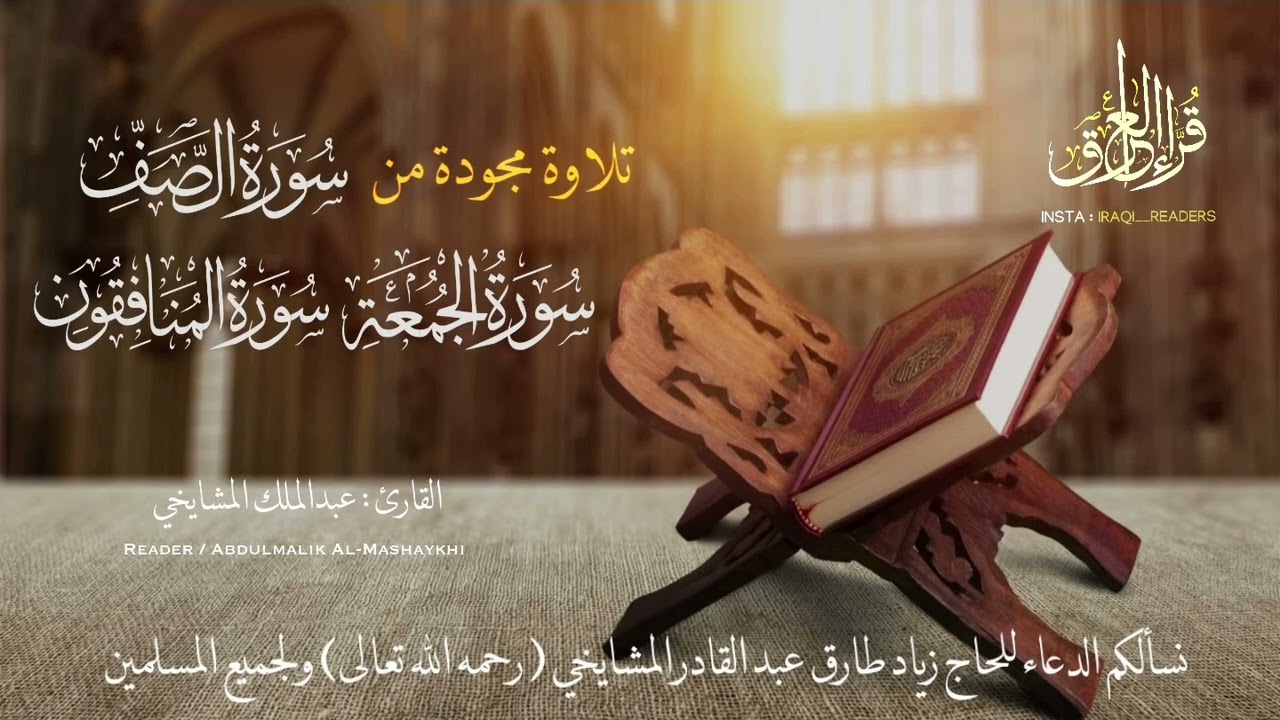 قُرَّاء العراق
INSTA : IRAQI__READERS
تلاوة مجودة من سُورَةُ الصَّفِّ
سُورَةُ الجُمُعَةِ سُورَةُ المُنَافِقُونِ
القارئ : عبدالملك المشايخي
READER / ABDULMALIK AL-MASHAYKHI
نسألكم الدعاء للحاج زياد طارق عبد القادر المشايخي ( رحمه الله تعالى ) ولجميع المسلمين